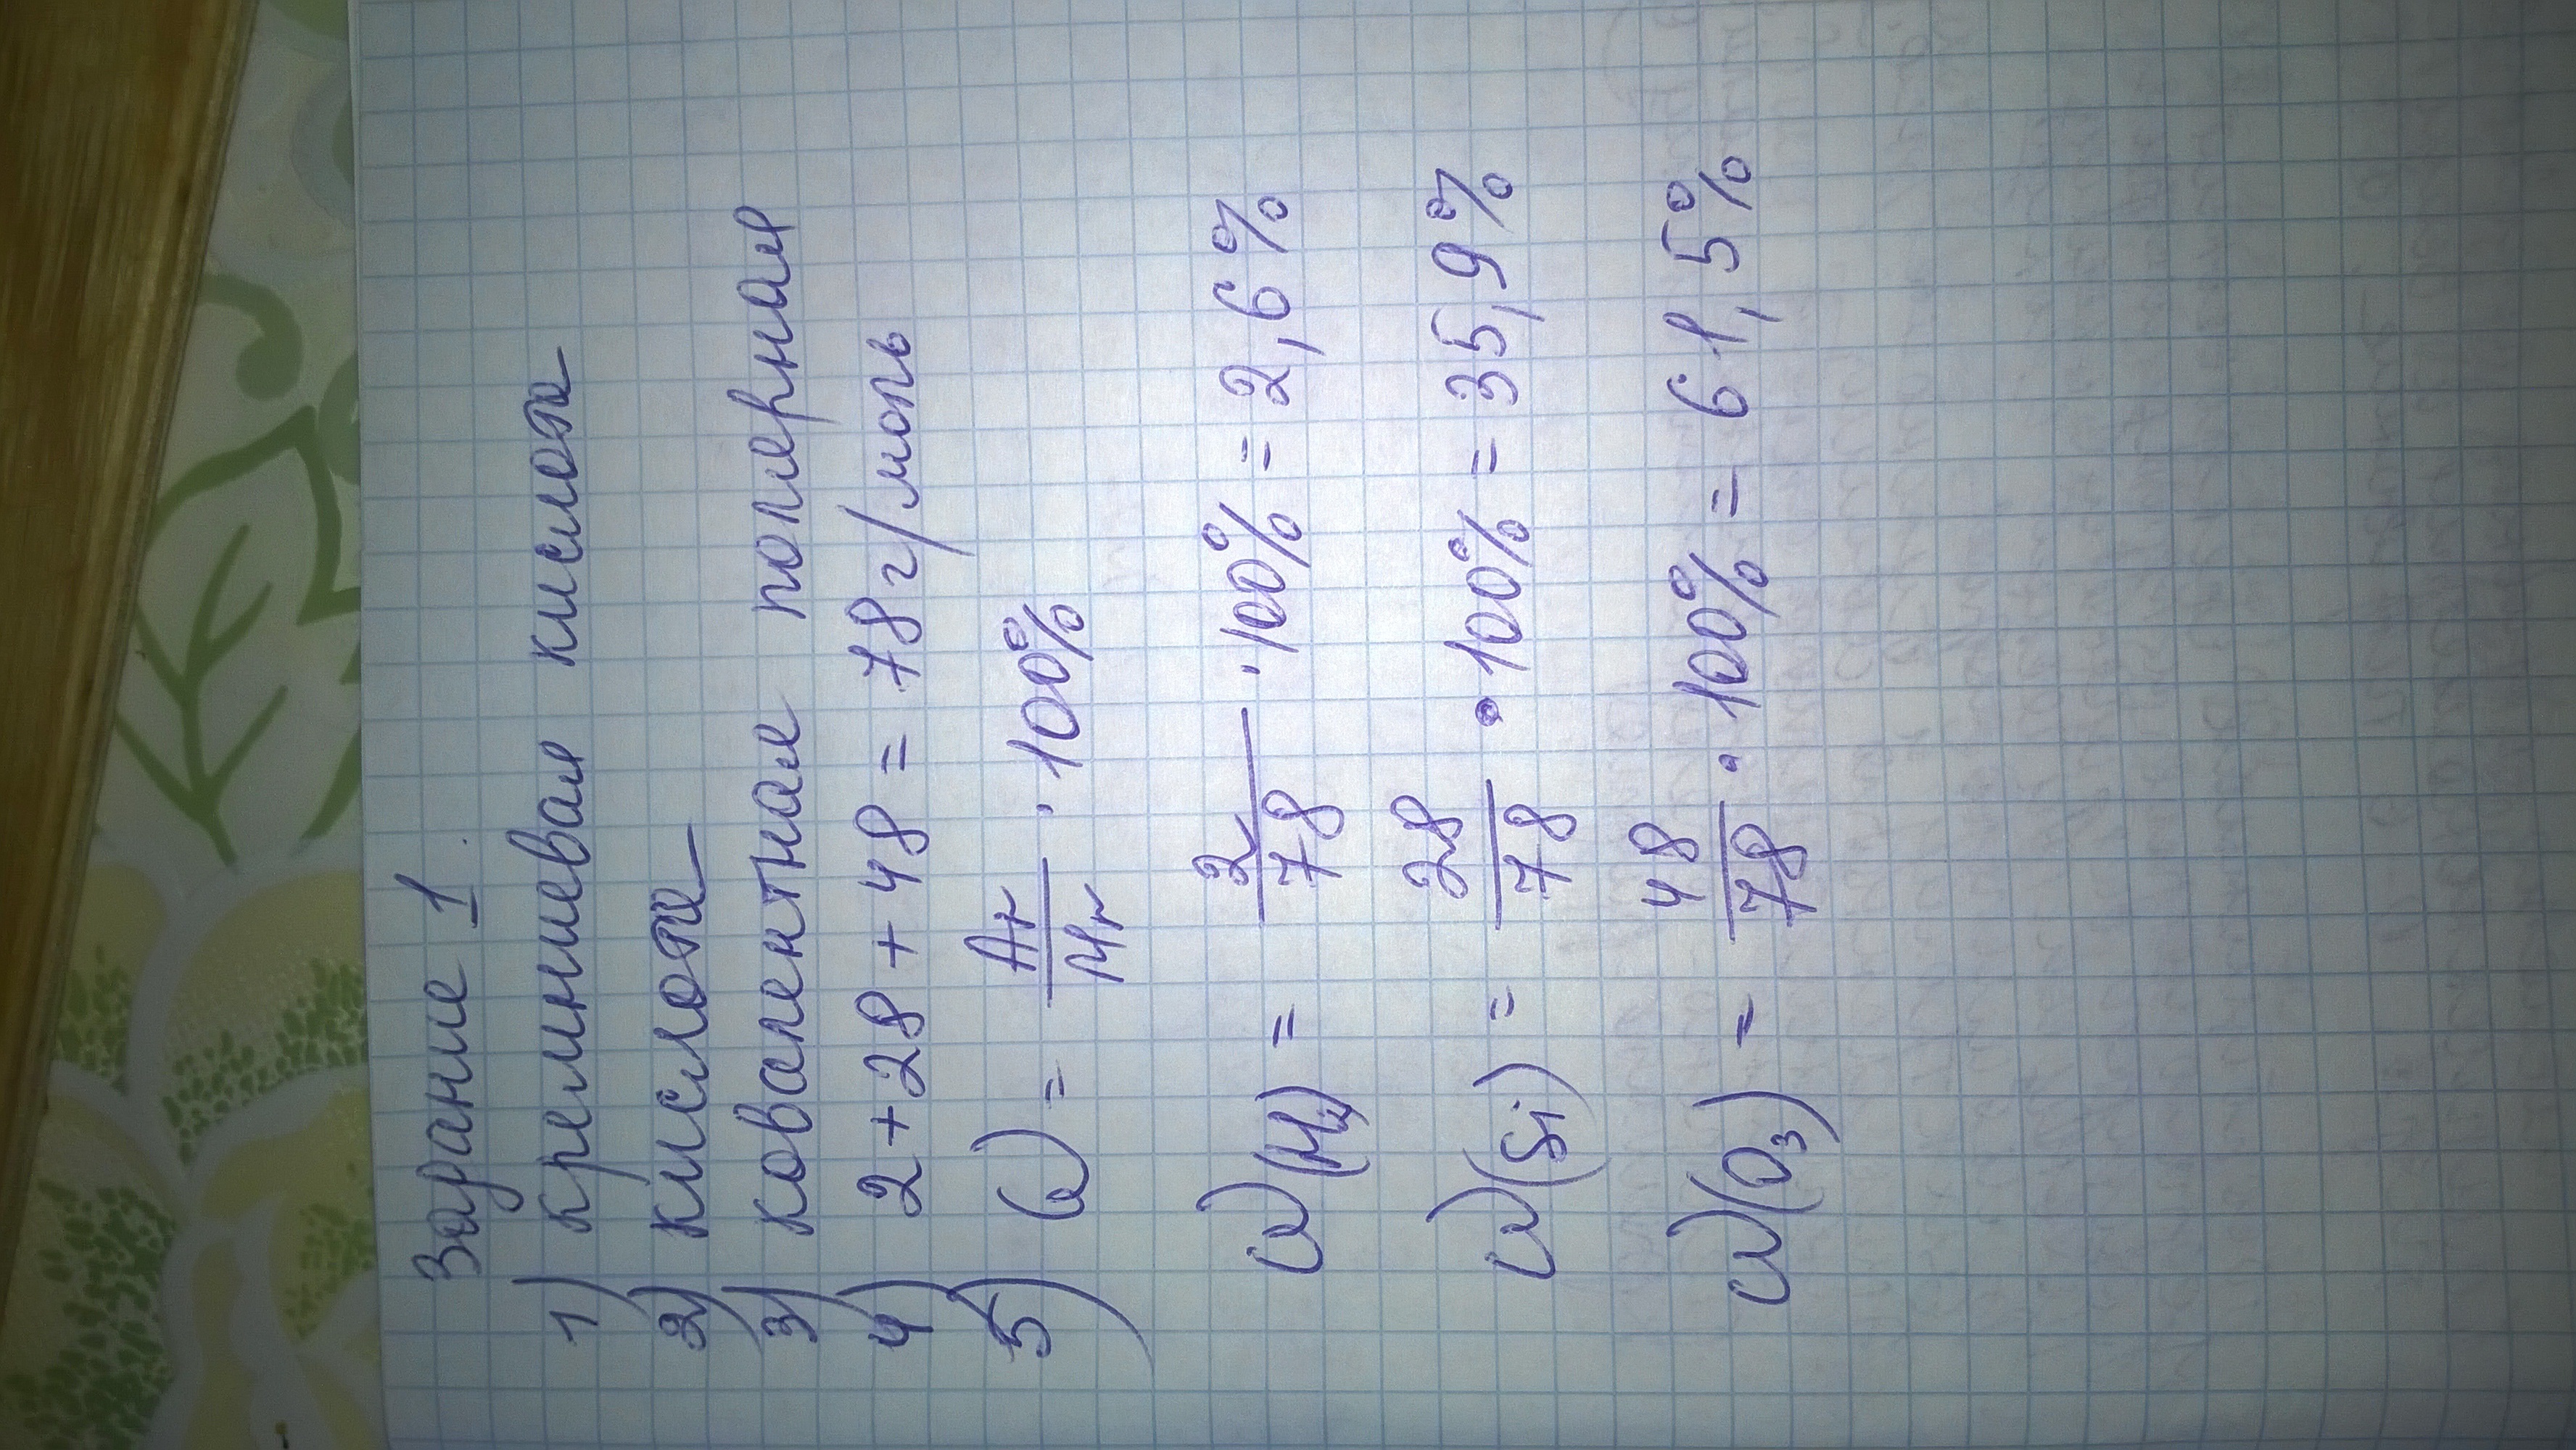 Задание 1.
1) кремниевая кислота
2) кислота
3) ковалентная полярная
4) 2+28+48=78г/моль
5) ω = Ar/Mr · 100%
ω(H₂) = 2/78 · 100% = 2,6%
ω(Si) = 28/78 · 100% = 35,9%
ω(O₃) = 48/78 · 100% = 61,5%